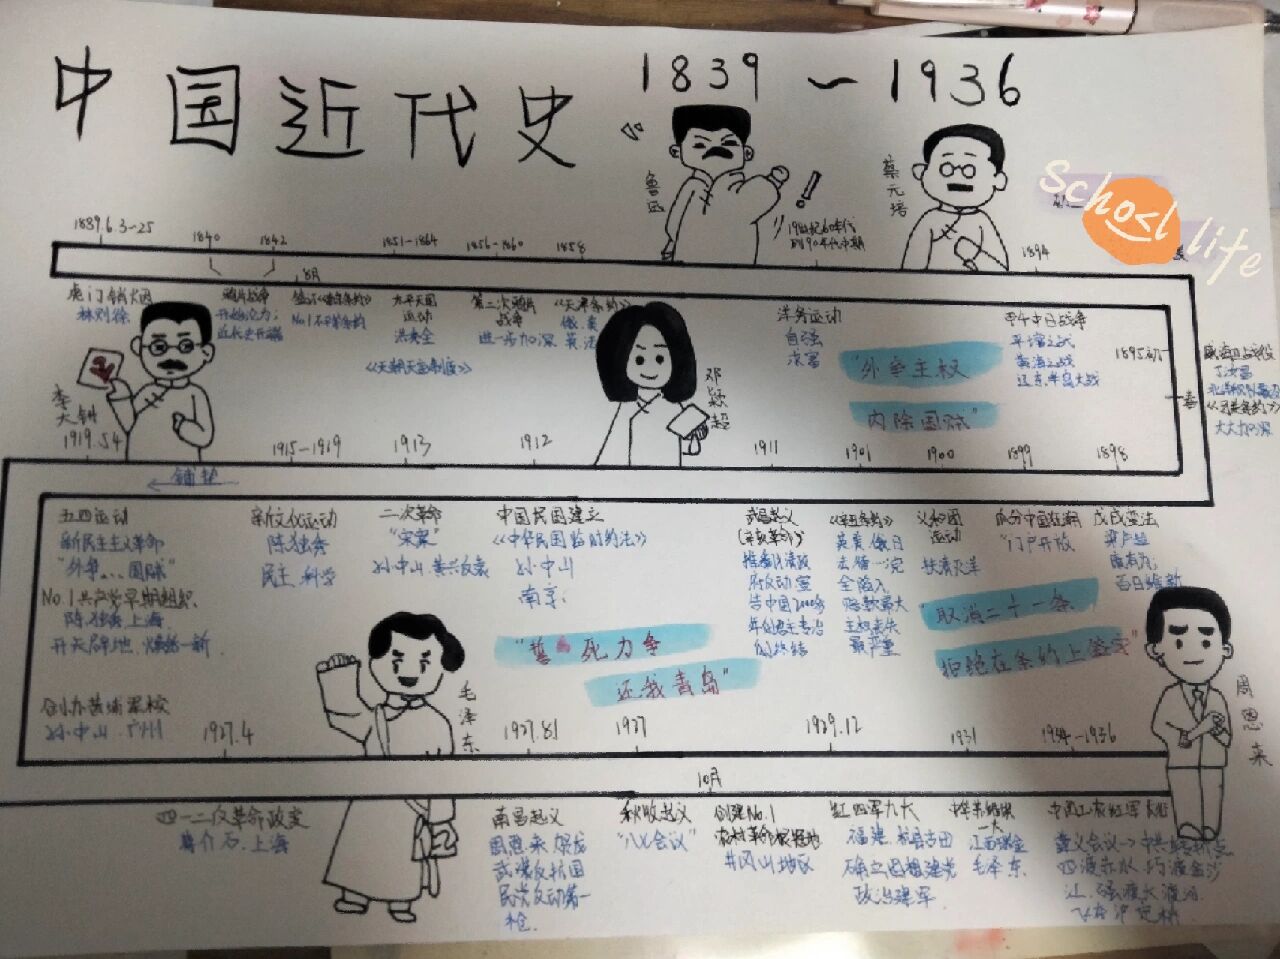 中国近代史
1839～1936
鲁迅
蔡元培
School life
1839.6.3-25
1840
1842
8月
1851-1864
1856-1860
1858
19世纪60年代
到90年代中期
1894
虎门销烟
林则徐
鸦片战争
No.1不平等条约
太平天国
运动
洪秀全
《天朝田亩制度》
第二次鸦片
战争
进一步加深
《天津条约》
俄、美
英、法
洋务运动
自强
求富
"外争主权
内除国贼"
甲午中日战争
平壤之战
黄海之战
辽东半岛大战
威海卫战役
丁汝昌
大大加深
李大钊
邓颖超
1919.5.4
1915-1919
1913
1912
1911
1901
1900
1899
1898
铺垫
五四运动
新民主主义革命
"外争...国贼"
No.1共产党早期组织
陈独秀 上海
开天辟地、焕然一新
创办黄埔军校
孙中山.广州
新文化运动
陈独秀
民主、科学
二次革命
"宋案"
孙中山、黄兴
中国民国建立
《中华民国临时约法》
孙中山
南京
武昌起义
(辛亥革命)
推翻清政
府反动
告中国2000多
年君主专治
的终结
《辛丑条约》
英美俄日
法德一
全陷入
赔款最大
主权丧失
最严重
义和团
运动
扶清灭洋
瓜分中国狂潮
"门户开放
戊戌变法
康有为
百日维新
"誓死力争
还我青岛"
"取消二十一条
拒绝在条约上签字"
毛泽东
周恩来
1927.4
1927.8.1
1927
1929.12
1931
1934-1936
10月
四一二反革命政变
蒋介石.上海
南昌起义
周恩来.贺龙
武装反抗国
民党反动第一
枪
秋收起义
"八七会议"
创建No.1
农村革命根据地
井冈山地区
红四军九大
福建.上杭县古田
确立思想建党
政治建军
一大
江西瑞金
毛泽东
中国工农红军长征
遵义会议→中共转折点
四渡赤水、巧渡金沙
江、强渡大渡河
飞夺泸定桥